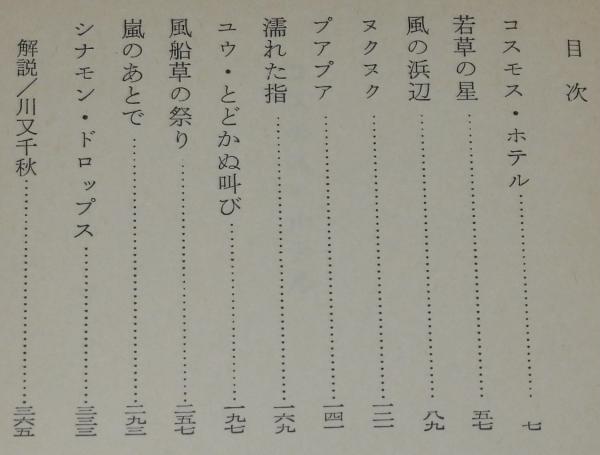 目次
コスモス・ホテル……七
若草の星……五七
風の浜辺……八九
ヌクヌク……一二一
プアプア……一四一
濡れた指……一六九
ユウ・とどかぬ叫び……一九七
風船草の祭り……二五七
嵐のあとで……二九三
シナモン・ドロップス……三三三
解説／川又千秋……三六五